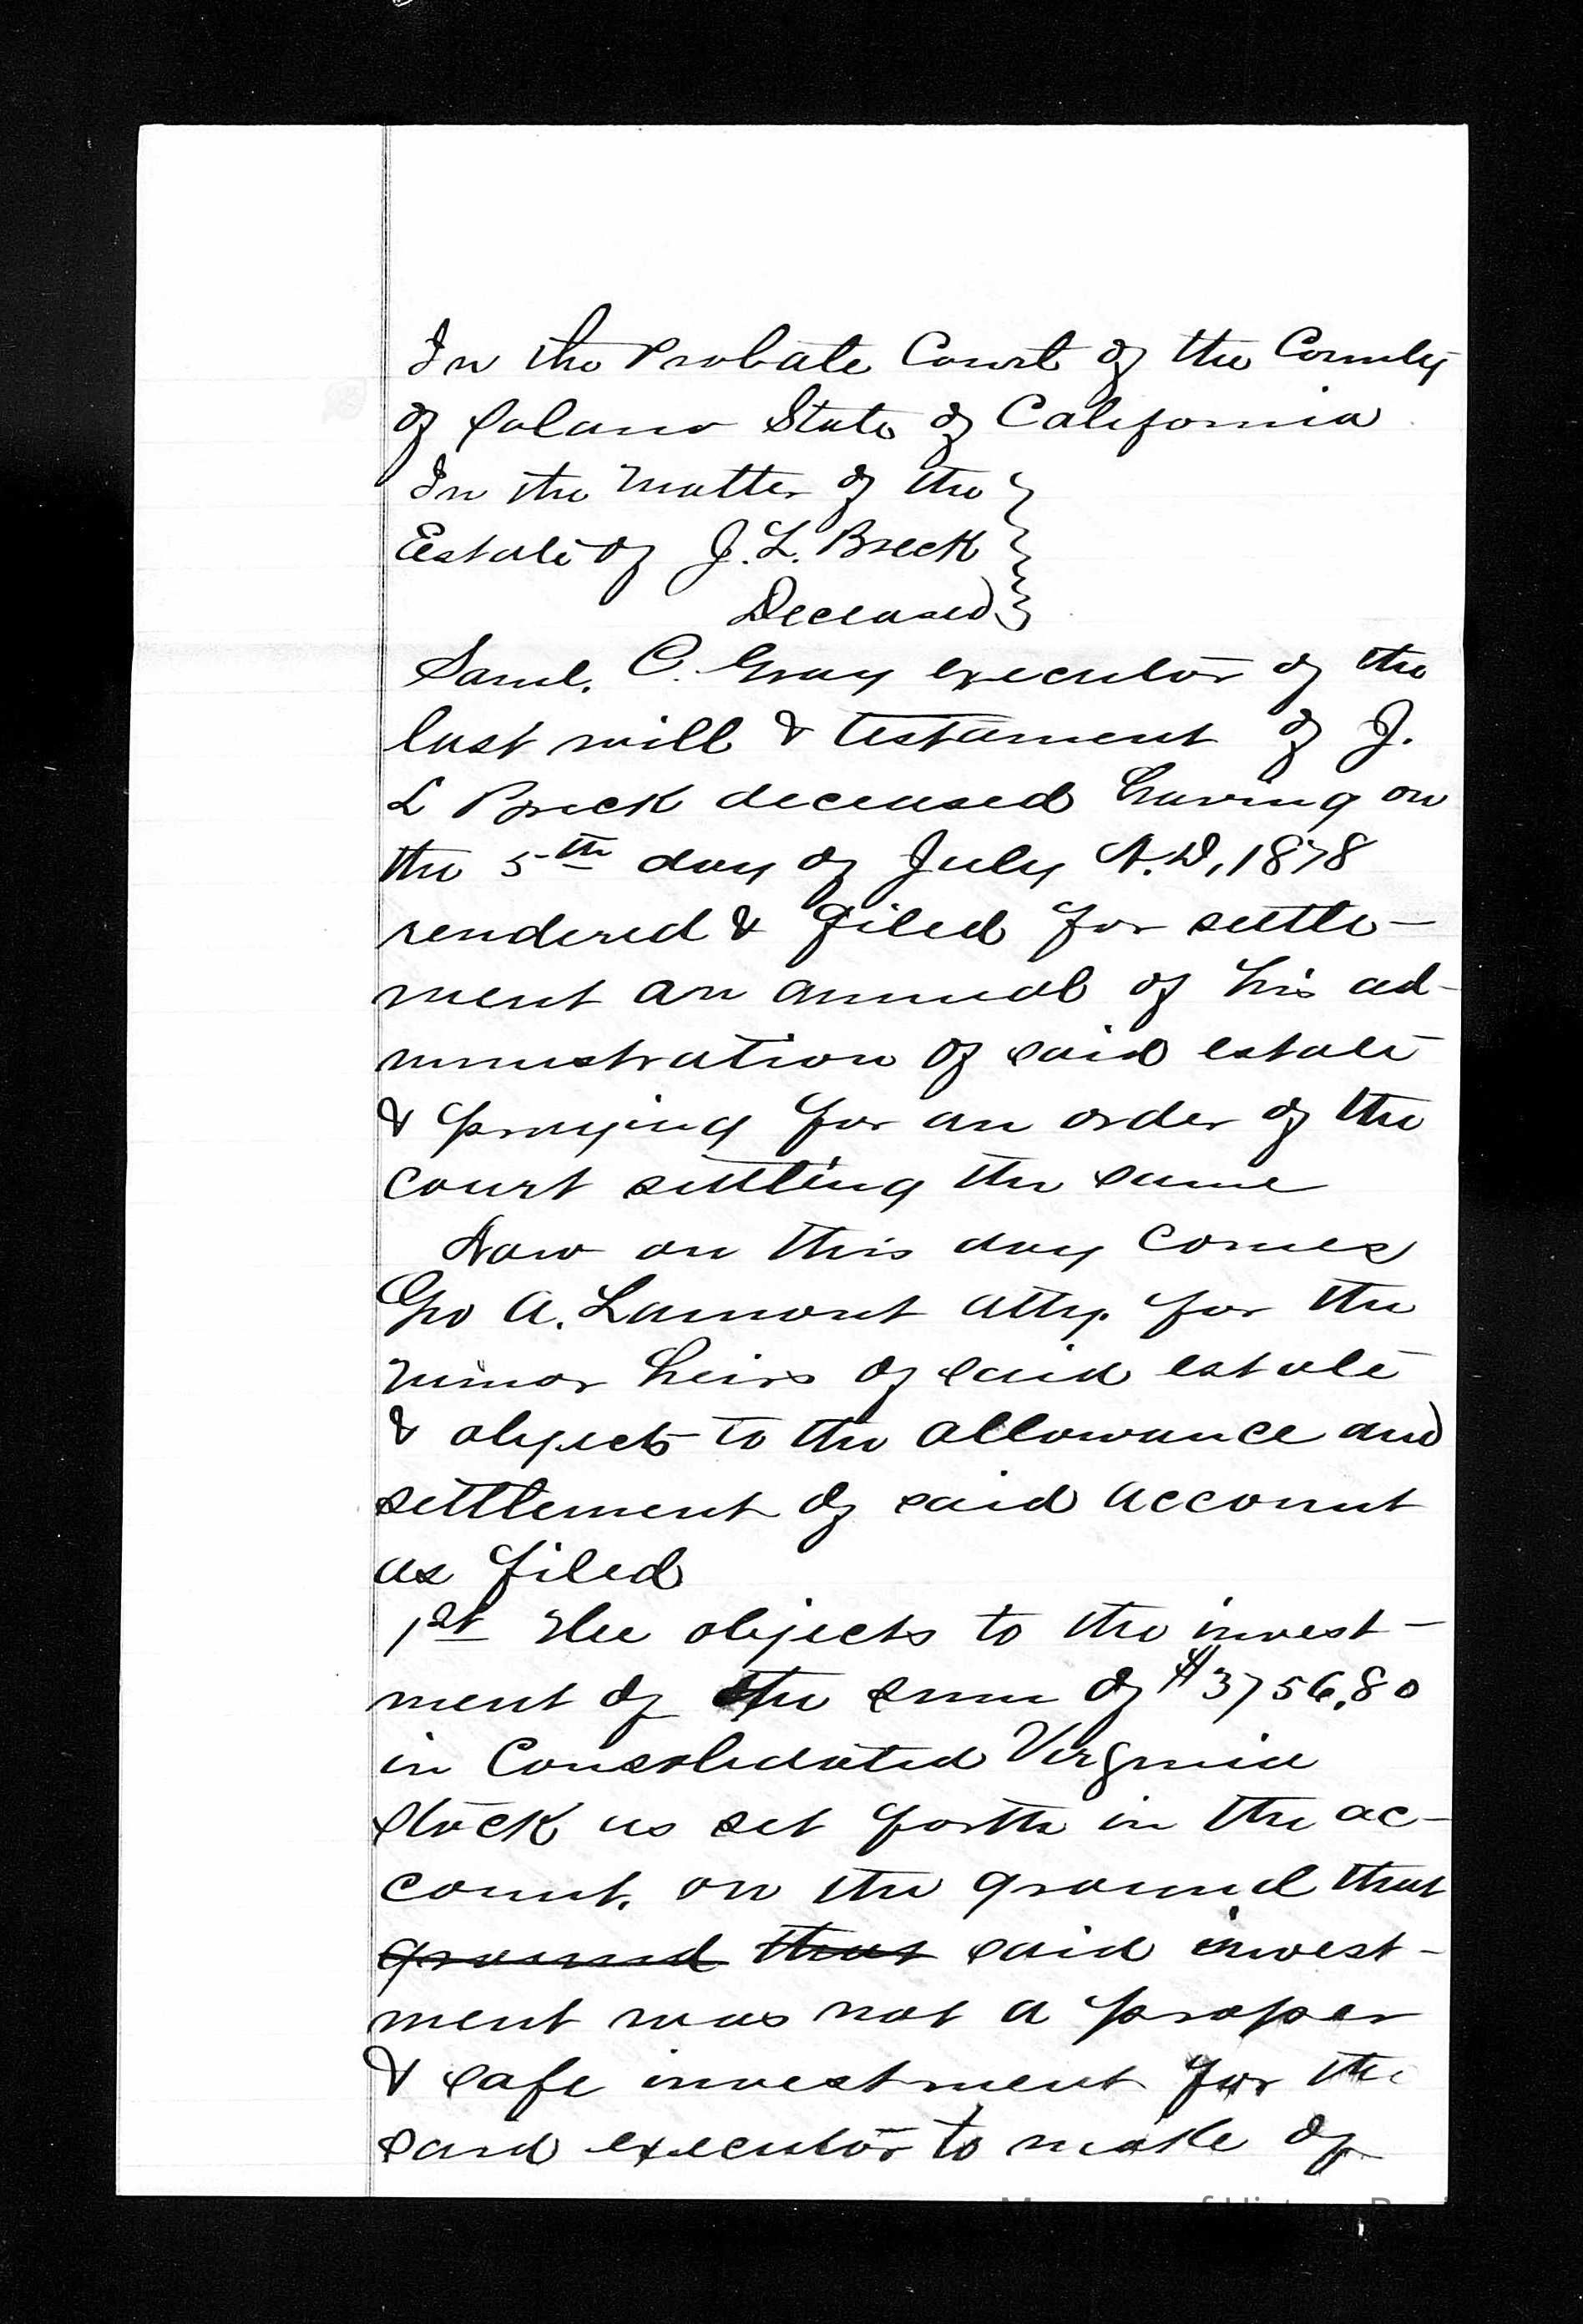 In the Probate Court of the County
of Solano State of California
In the Matter of the
Estate of J. L. Breck
Deceased
Saml. C. Gray executor of the
last will & testament of J.
L Breck deceased having on
the 5th day of July A.D, 1878
rendered & filed for settle-
ment an annual of his ad-
ministration of said estate
& praying for an order of the
court settling the same
Now on this day comes
Geo A. Lamont atty. for the
minor heirs of said estate
& objects to the allowance and
settlement of said account
as filed
1st He objects to the invest-
ment of the sum of $3756.80
in Consolidated Virginia
stock as set forth in the ac-
count. on the ground that
ground that said invest-
ment was not a proper
& safe investment for the
said executor to make of